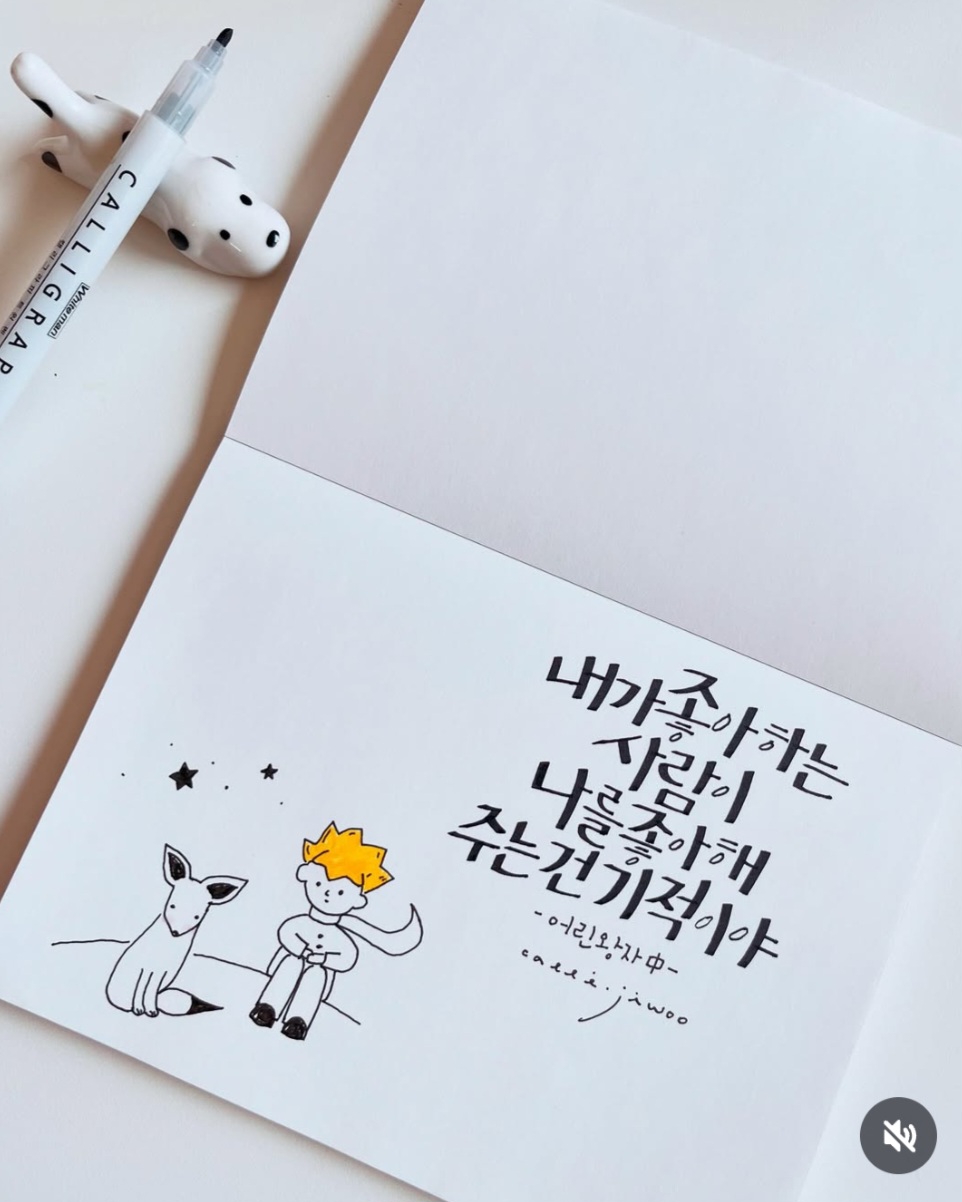 CALLIGRAP
Whiteman
내가좋아하는
사람이
나를좋아해
주는건기적이야
-어린왕자中-
calli.jiwoo